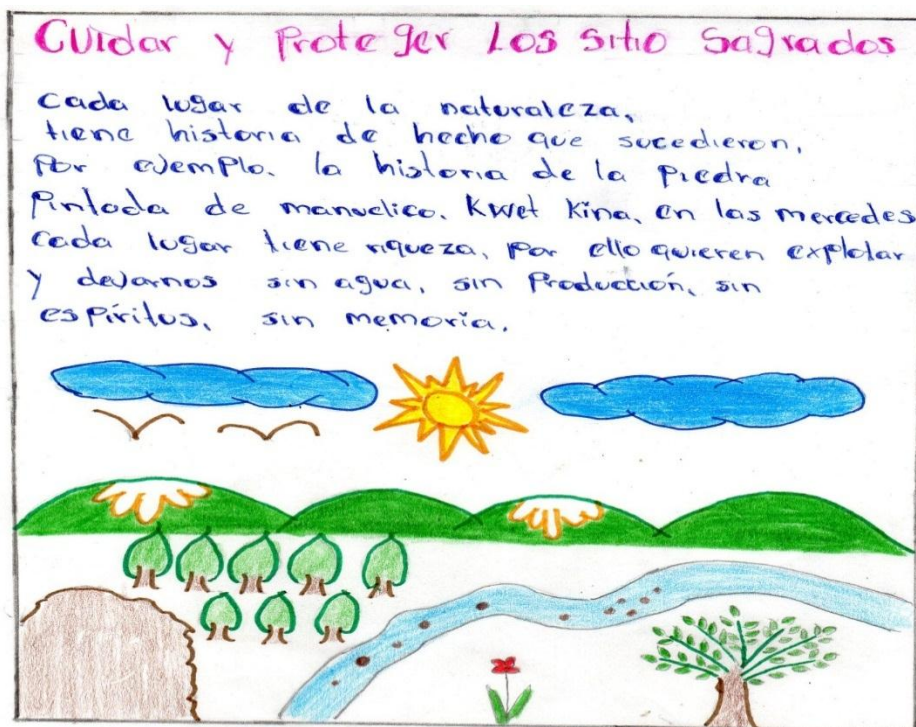 Cuidar y Proteger Los sitio Sagrados
Cada lugar de la naturaleza,
tiene historia de hecho que sucedieron,
Por ejemplo. la historia de la Piedra
Pintada de manuelico. Kwet Kina, en las mercedes
Cada lugar tiene riqueza, por ello quieren explotar
y dejarnos sin agua, sin Producción, sin
espíritus, sin memoria.